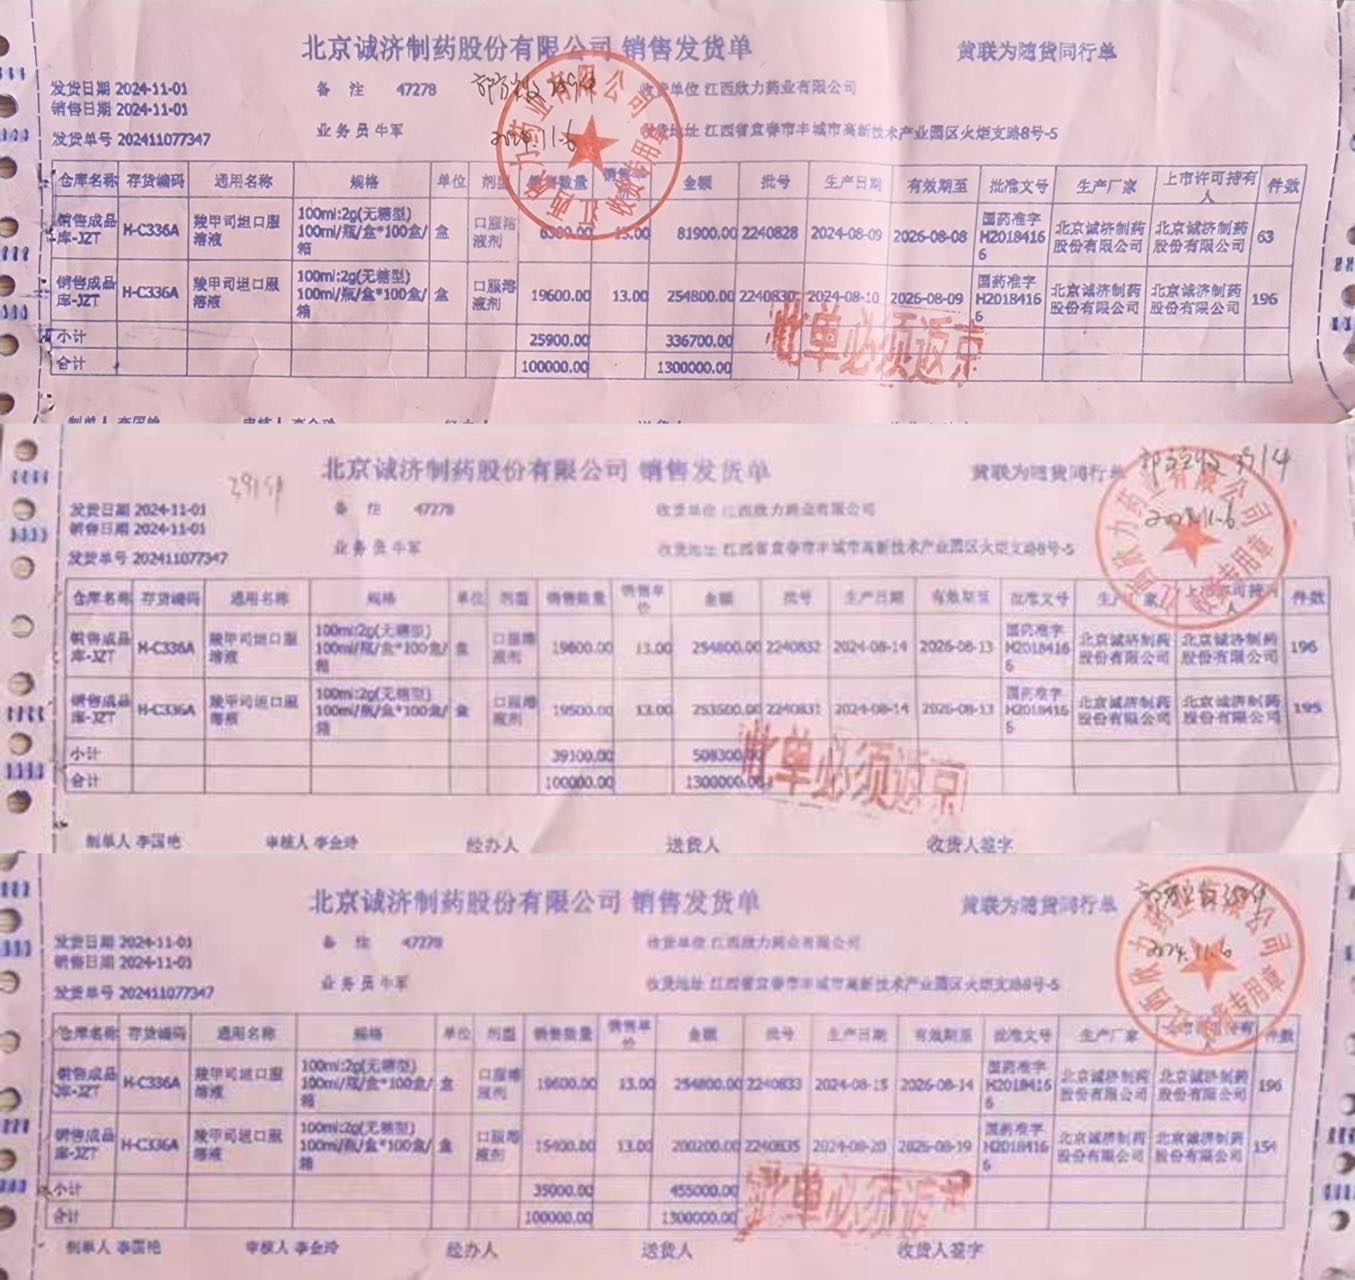 北京诚济制药股份有限公司 销售发货单 黄联为随货同行单
发货日期 2024-11-01 备 注 47278 收货单位 江西欣力药业有限公司
销售日期 2024-11-01
2024.11.6
业务员 牛军 收货地址 江西省宜春市丰城市高新技术产业园区火炬支路8号-5
发货单号 202411077347
江西欣力药业有限公司
收货专用章
仓库名称 存货编码 通用名称 规格 单位 剂型 销售数量 销售单价 金额 批号 生产日期 有效期至 批准文号 生产厂家 上市许可持有人 件数
销售成品库-JZT H-C336A 羧甲司坦口服溶液 100ml:2g(无糖型) 100ml/瓶/盒*100盒/箱 盒 口服溶液剂 6300.00 13.00 81900.00 2240828 2024-08-09 2026-08-08 国药准字H20184166 北京诚济制药股份有限公司 北京诚济制药股份有限公司 63
销售成品库-JZT H-C336A 羧甲司坦口服溶液 100ml:2g(无糖型) 100ml/瓶/盒*100盒/箱 盒 口服溶液剂 19600.00 13.00 254800.00 2240830 2024-08-10 2026-08-09 国药准字H20184166 北京诚济制药股份有限公司 北京诚济制药股份有限公司 196
小计 25900.00 336700.00
合计 100000.00 1300000.00
此单必须返京
北京诚济制药股份有限公司 销售发货单 黄联为随货同行单
发货日期 2024-11-01 备 注 47278 收货单位 江西欣力药业有限公司
销售日期 2024-11-01
2024.11.6
业务员 牛军 收货地址 江西省宜春市丰城市高新技术产业园区火炬支路8号-5
发货单号 202411077347
江西欣力药业有限公司
收货专用章
仓库名称 存货编码 通用名称 规格 单位 剂型 销售数量 销售单价 金额 批号 生产日期 有效期至 批准文号 生产厂家 上市许可持有人 件数
销售成品库-JZT H-C336A 羧甲司坦口服溶液 100ml:2g(无糖型) 100ml/瓶/盒*100盒/箱 盒 口服溶液剂 19600.00 13.00 254800.00 2240832 2024-08-14 2026-08-13 国药准字H20184166 北京诚济制药股份有限公司 北京诚济制药股份有限公司 196
销售成品库-JZT H-C336A 羧甲司坦口服溶液 100ml:2g(无糖型) 100ml/瓶/盒*100盒/箱 盒 口服溶液剂 19500.00 13.00 253500.00 2240831 2024-08-14 2026-08-13 国药准字H20184166 北京诚济制药股份有限公司 北京诚济制药股份有限公司 195
小计 39100.00 508300.00
合计 100000.00 1300000.00
此单必须返京
制单人 李国艳 审核人 李金玲 经办人 送货人 收货人签字
北京诚济制药股份有限公司 销售发货单 黄联为随货同行单
发货日期 2024-11-01 备 注 47278 收货单位 江西欣力药业有限公司
销售日期 2024-11-01
2024.11.6
业务员 牛军 收货地址 江西省宜春市丰城市高新技术产业园区火炬支路8号-5
发货单号 202411077347
江西欣力药业有限公司
收货专用章
仓库名称 存货编码 通用名称 规格 单位 剂型 销售数量 销售单价 金额 批号 生产日期 有效期至 批准文号 生产厂家 上市许可持有人 件数
销售成品库-JZT H-C336A 羧甲司坦口服溶液 100ml:2g(无糖型) 100ml/瓶/盒*100盒/箱 盒 口服溶液剂 19600.00 13.00 254800.00 2240833 2024-08-15 2026-08-14 国药准字H20184166 北京诚济制药股份有限公司 北京诚济制药股份有限公司 196
销售成品库-JZT H-C336A 羧甲司坦口服溶液 100ml:2g(无糖型) 100ml/瓶/盒*100盒/箱 盒 口服溶液剂 15400.00 13.00 200200.00 2240835 2024-08-20 2026-08-19 国药准字H20184166 北京诚济制药股份有限公司 北京诚济制药股份有限公司 154
小计 35000.00 455000.00
合计 100000.00 1300000.00
此单必须返京
制单人 李国艳 审核人 李金玲 经办人 送货人 收货人签字